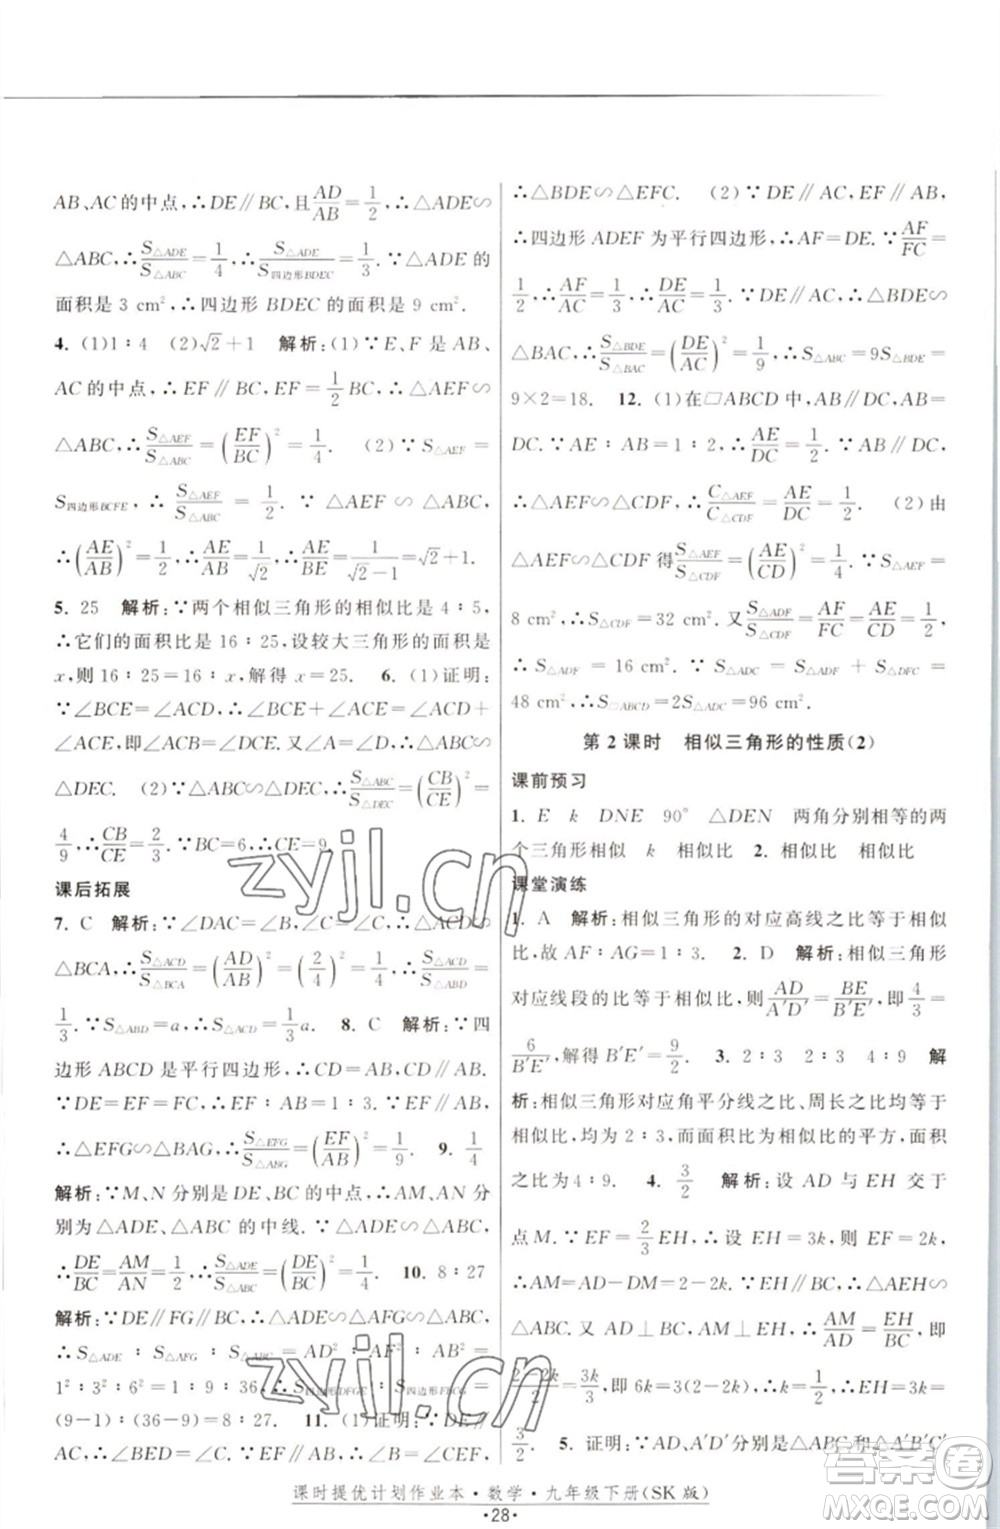 AB、AC的中点，∴DE∥BC，且AD/AB=1/2，∴△ADE∽
△ABC，∴S△ADE/S△ABC=1/4，∴S△ADE/S四边形BDEC=1/3.∵△ADE的
面积是 3 cm²，∴四边形 BDEC 的面积是 9 cm².
4. (1)1∶4 (2)√2+1 解析：(1)∵E、F 是 AB、
AC的中点，∴EF∥BC，EF=1/2BC，∴△AEF∽
△ABC，∴S△AEF/S△ABC=(EF/BC)²=1/4. (2)∵S△AEF=
S四边形BCFE，∴S△AEF/S△ABC=1/2.∵△AEF∽△ABC，
∴(AE/AB)²=1/2，∴AE/AB=1/√2，∴AE/BE=1/(√2-1)=√2+1.
5. 25 解析：∵两个相似三角形的相似比是 4∶5，
∴它们的面积比是 16∶25，设较大三角形的面积是
x，则 16∶25=16∶x，解得 x=25. 6. (1)证明：
∵∠BCE=∠ACD，∴∠BCE+∠ACE=∠ACD+
∠ACE，即∠ACB=∠DCE.又∵∠A=∠D，∴△ABC∽
△DEC. (2)∵△ABC∽△DEC，∴S△ABC/S△DEC=(CB/CE)²=
4/9，∴CB/CE=2/3.∵BC=6，∴CE=9.
课后拓展
7. C 解析：∵∠DAC=∠B，∠C=∠C，∴△ACD∽
△BCA，∴S△ACD/S△BCA=(AD/AB)²=(2/4)²=1/4，∴S△ACD/S△ABD=
1/3.∵S△ABD=a，∴S△ACD=1/3a. 8. C 解析：∵四
边形 ABCD 是平行四边形，∴CD=AB，CD∥AB.
∵DE=EF=FC，∴EF∶AB=1∶3，△EFG∽△ABG，
∴△EFG∽△ABG，∴S△EFG/S△ABG=(EF/AB)²=1/9. 9. 1/4
解析：∵M、N 分别是 DE、BC 的中点，∴AM、AN 分
别为△ADE、△ABC 的中线.∵△ADE∽△ABC，
∴DE/BC=AM/AN=1/2，∴S△ADE/S△ABC=(DE/BC)²=1/4. 10. 8∶27
解析：∵DE∥FG∥BC，∴△ADE∽△AFG∽△ABC，
∴S△ADE∶S△AFG∶S△ABC=AD²∶AF²∶AB²=
1²∶2²∶3²=1∶4∶9，∴S四边形DFGE∶S四边形FBCG=
(9-1)∶(36-9)=8∶27. 11. (1)证明：∵DE∥
AC，∴∠BED=∠C.∵EF∥AB，∴∠B=∠CEF，
∴△BDE∽△EFC. (2)∵DE∥AC，EF∥AB，
∴四边形 ADEF 为平行四边形，∴AF=DE.∵AF/FC=
1/2，∴AF/AC=1/3，∴DE/AC=1/3.∵DE∥AC，∴△BDE∽
△BAC，∴S△BDE/S△BAC=(DE/AC)²=1/9，∴S△ABC=9S△BDE=
9×2=18. 12. (1)在▱ABCD 中，AB∥DC，AB=
DC.∵AE∶AB=1∶2，∴AE/DC=1/2.∵AB∥DC，
∴△AEF∽△CDF，∴C△AEF/C△CDF=AE/DC=1/2. (2)由
△AEF∽△CDF 得S△AEF/S△CDF=(AE/DC)²=1/4.∵S△AEF=
8 cm²，∴S△CDF=32 cm².又S△ADF/S△CDF=AF/FC=AE/CD=1/2，
∴S△ADF=16 cm².∵S△ADC=S△ADF+S△DFC=
48 cm²，∴S▱ABCD=2S△ADC=96 cm².
第 2 课时 相似三角形的性质(2)
课前预习
1. E k DNE 90° △DEN 两角分别相等的两
个三角形相似 k 相似比 2. 相似比 相似比
课堂演练
1. A 解析：相似三角形的对应高线之比等于相似
比，故 AF∶AG=1∶3. 2. D 解析：相似三角形的
对应线段的比等于相似比，则AD/A′D′=BE/B′E′，即4/3=
6/B′E′，解得 B′E′=9/2. 3. 2∶3 2∶3 4∶9 解
析：相似三角形对应角平分线之比、周长之比都等于
相似比，均为 2∶3，而面积比为相似比的平方，面积
之比为 4∶9. 4. 3/2 解析：设 AD 与 EH 交于
点 M.∵EF=2/3EH，∴设 EH=3k，则 EF=2k，
∴AM=AD-DM=2-2k.∵EH∥BC，∴△AEH∽
△ABC.又 AD⊥BC，EH∥BC，∴AM/AD=EH/BC，即
(2-2k)/2=3k/3，即 6k=3(2-2k)，∴k=1/2，∴EH=3k=
3/2. 5. 证明：∵AD、A′D′分别是△ABC和△A′B′C′
课时提优计划作业本·数学·九年级下册(SK 版)
·28·
zyjl.cn
zyjl.cn
作业帮
答案
MXQE.COM